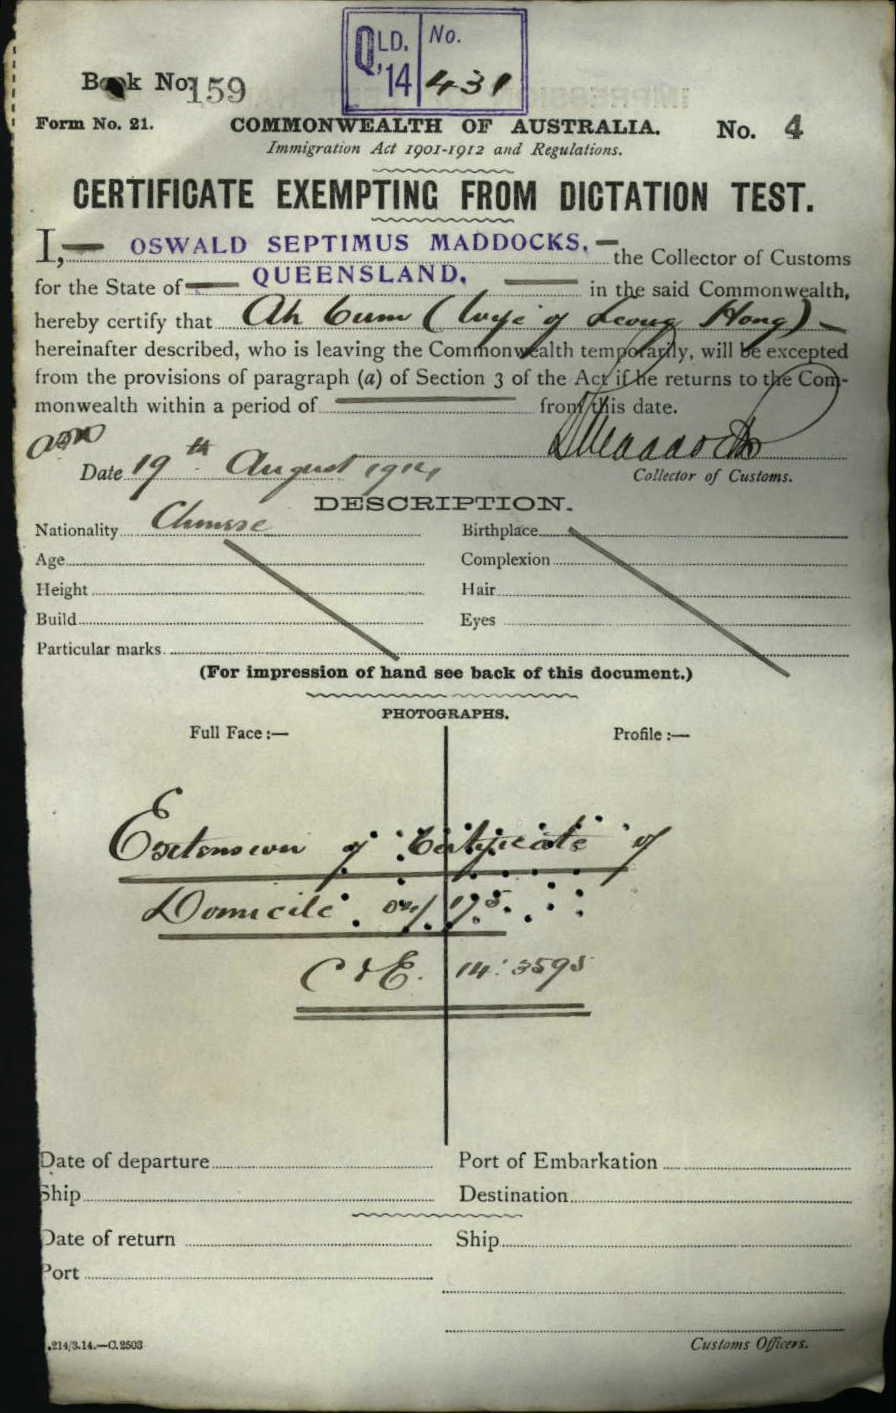 QLD. '14 No. 431
Book No. 159
Form No. 21. COMMONWEALTH OF AUSTRALIA. No. 4
Immigration Act 1901-1912 and Regulations.
CERTIFICATE EXEMPTING FROM DICTATION TEST.
I, OSWALD SEPTIMUS MADDOCKS, the Collector of Customs
for the State of QUEENSLAND, in the said Commonwealth,
hereby certify that Ah Cum (wife of Leong Hong)
hereinafter described, who is leaving the Commonwealth temporarily, will be excepted
from the provisions of paragraph (a) of Section 3 of the Act if he returns to the Com-
monwealth within a period of from this date.
Date 19th August 1914
Collector of Customs.
DESCRIPTION.
Nationality Chinese Birthplace
Age Complexion
Height Hair
Build Eyes
Particular marks
(For impression of hand see back of this document.)
PHOTOGRAPHS.
Full Face :— Profile :—
Extension of Certificate of
Domicile 04/175
C & E. 14:3595
Date of departure Port of Embarkation
Ship Destination
Date of return Ship
Port
.214/3.14.—C.2503 Customs Officers.